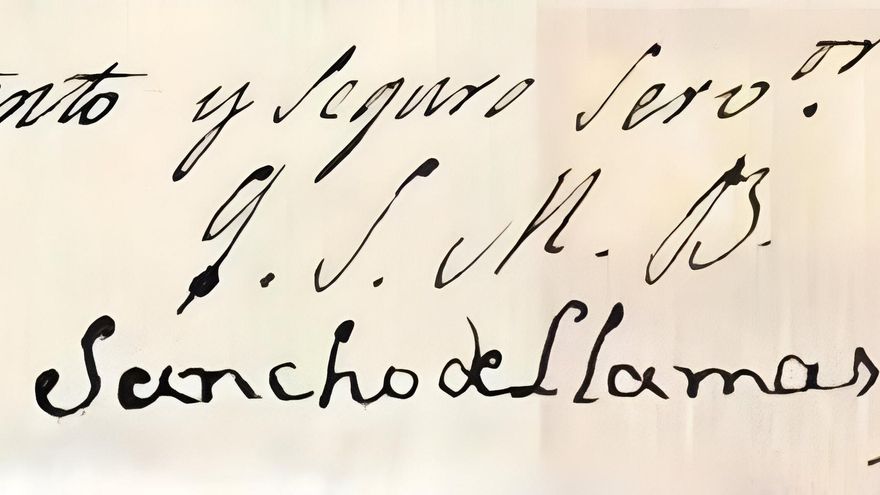 nto y seguro serv.or
q. S. M. B.
Sancho de Llamas